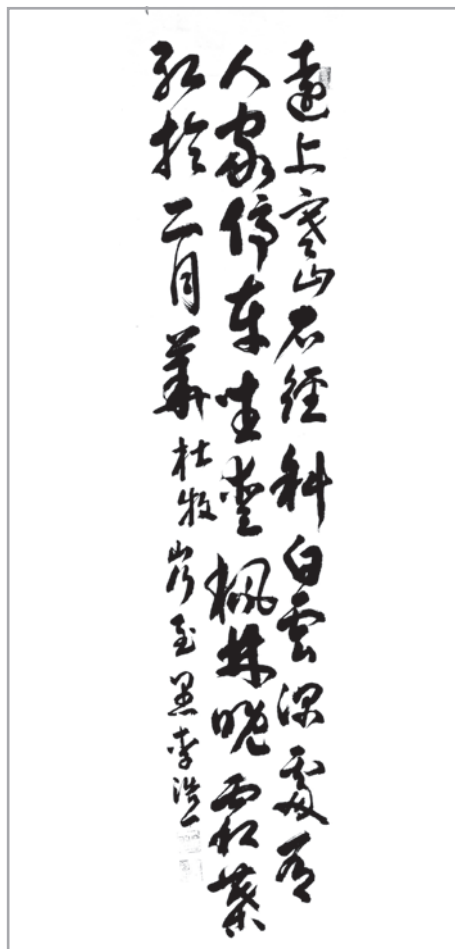 遠上寒山石徑斜白雲深處有
人家停車坐愛楓林晚霜葉
紅於二月華杜牧李浩一